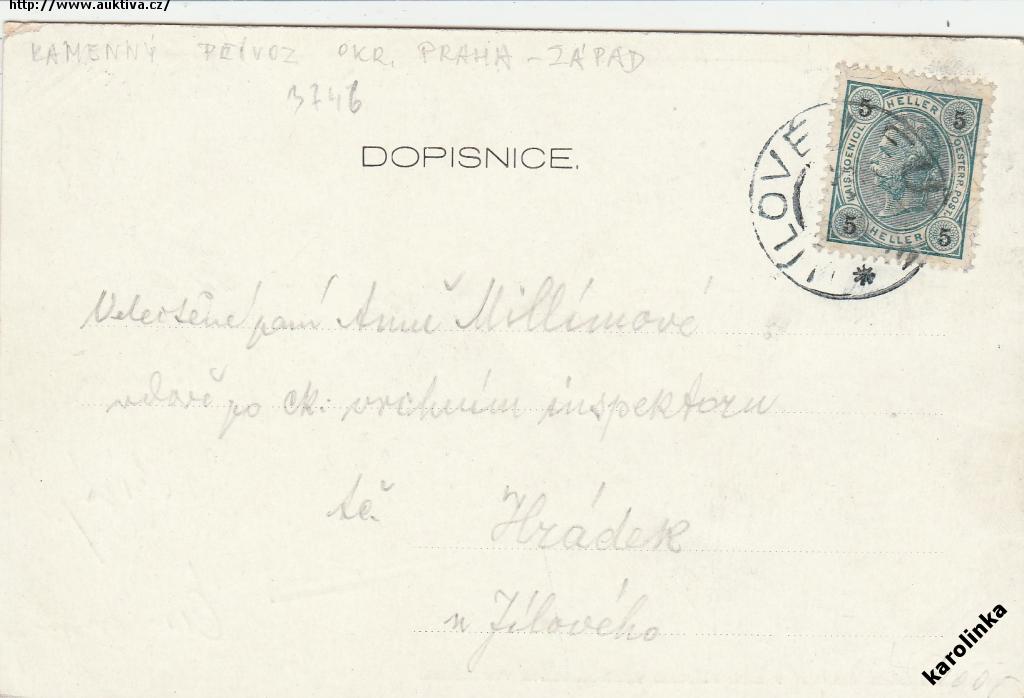 http://www.auktiva.cz/
KAMENNÝ PŘÍVOZ OKR. PRAHA-ZÁPAD
3746
DOPISNICE.
5 HELLER 5
KAIS. KOENIGL. OESTERR. POST
5 HELLER 5
JÍLOVÉ
Velectěné paní Anně Millímové
vdově po ck. vrchním inspektoru
tč. Hrádek
u Jílového
karolinka